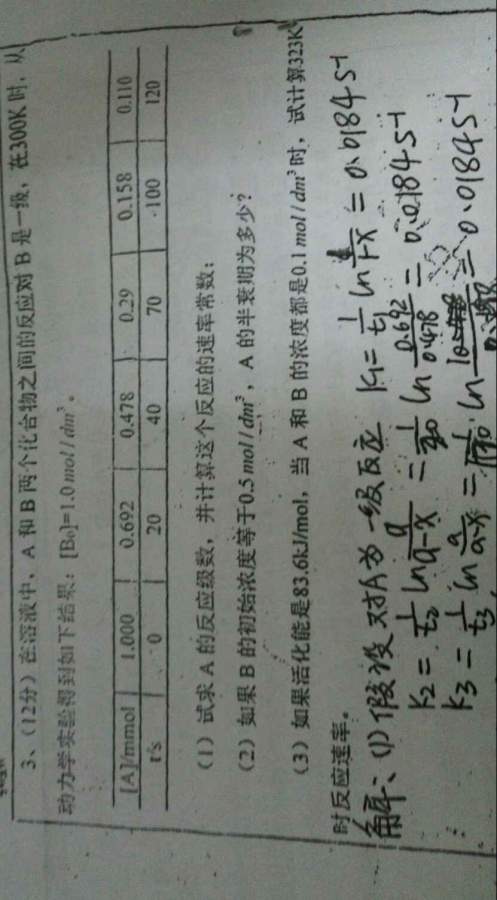 3、(12分) 在溶液中，A 和 B 两个化合物之间的反应对 B 是一级，在300K 时，从
动力学实验得到如下结果：[B₀]=1.0 mol / dm³。
[A]/mmol 1.000 0.692 0.478 0.29 0.158 0.110
t/s 0 20 40 70 100 120
(1) 试求 A 的反应级数，并计算这个反应的速率常数；
(2) 如果 B 的初始浓度等于0.5 mol / dm³，A 的半衰期为多少？
(3) 如果活化能是83.6kJ/mol，当 A 和 B 的浓度都是0.1 mol / dm³ 时，试计算323K
时反应速率。
解、(1) 假设对A为一级反应 k₁ = 1/t₁ ln 1/1-x = 0.0184 S⁻¹
k₂ = 1/t₂ ln a/a-x = 1/20 ln 0.692/0.478 = 0.0184 S⁻¹
k₃ = 1/t₃ ln a/a-x = ln = 0.0184 S⁻¹